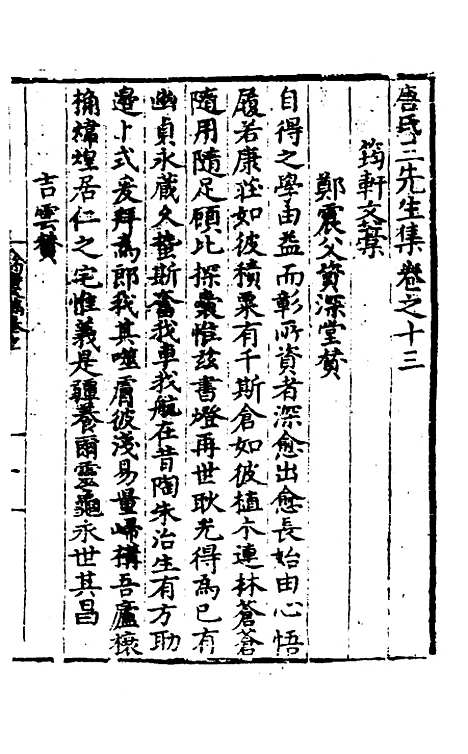 唐氏三先生集卷之十三
筠軒文藁
鄭震父資深堂贊
自得之學由益而彰所資者深愈出愈長始由心悟
履若康莊如彼積粟有千斯倉如彼植木連林蒼蒼
隨用隨足顧此探囊惟茲書燈再世耿光得為已有
幽貞永藏久蟄斯奮我車我航在昔陶朱治生有方助
邊卜式爰拜為郎我其噬膚彼淺易量歸構吾廬榱
桷煒煌居仁之宅惟義是疆養爾靈龜永世其昌
吉雲贊